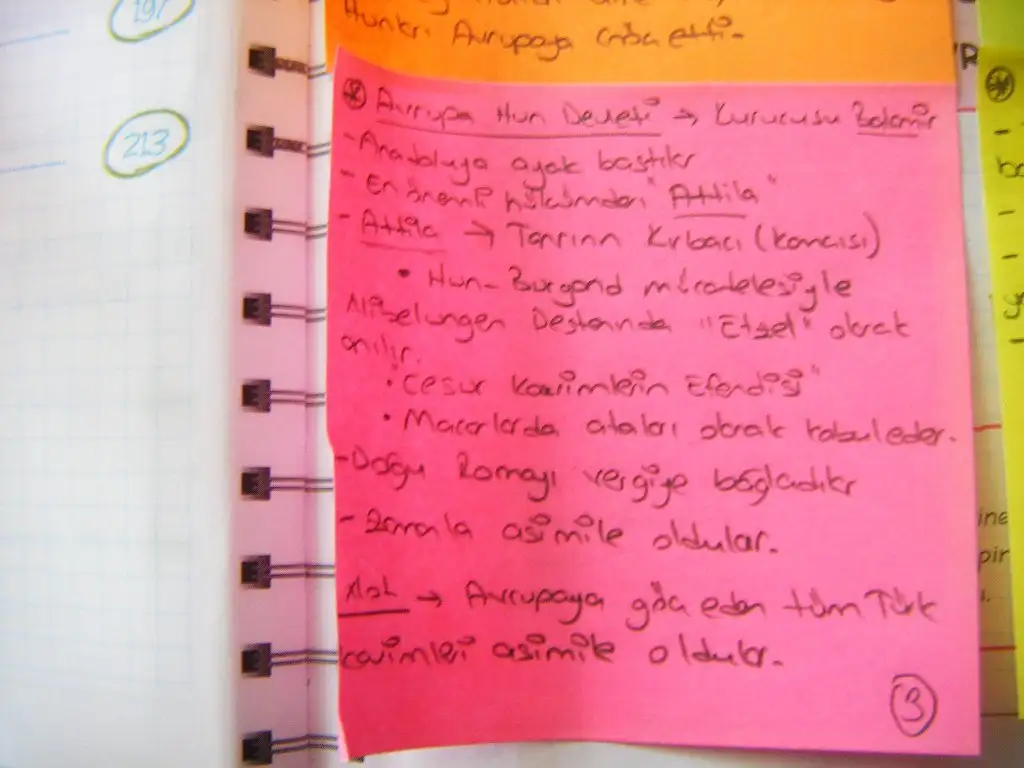 197
213
Hunları Avrupaya göç etti.
Avrupa Hun Devleti → Kurucusu Balamir
- Anadoluya ayak bastılar
- En önemli hükümdarı "Attila"
- Attila → Tanrının Kırbacı (kamçısı)
• Hun-Burgond mücadelesiyle
Nibelungen Destanında "Etzel" olarak
anılır.
• "Cesur Kavimlerin Efendisi"
• Macarlarda ataları olarak kabul eder.
- Doğu Romayı vergiye bağladılar
- Zamanla asimile oldular.
Not → Avrupaya göç eden tüm Türk
kavimleri asimile oldular.
3
ine
pir